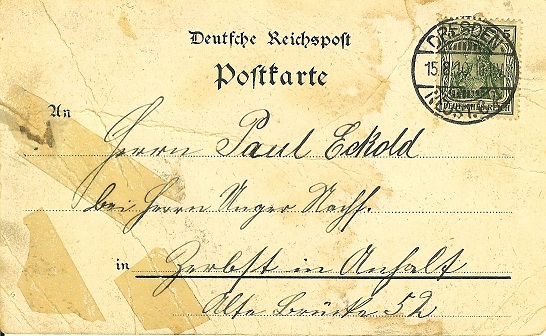 Deutsche Reichspost
Postkarte
DRESDEN
15.8.10
5
An
Herrn Paul Eckold
bei Herrn Unger Nachf.
in Zerbst in Anhalt
Alte Brücke 52